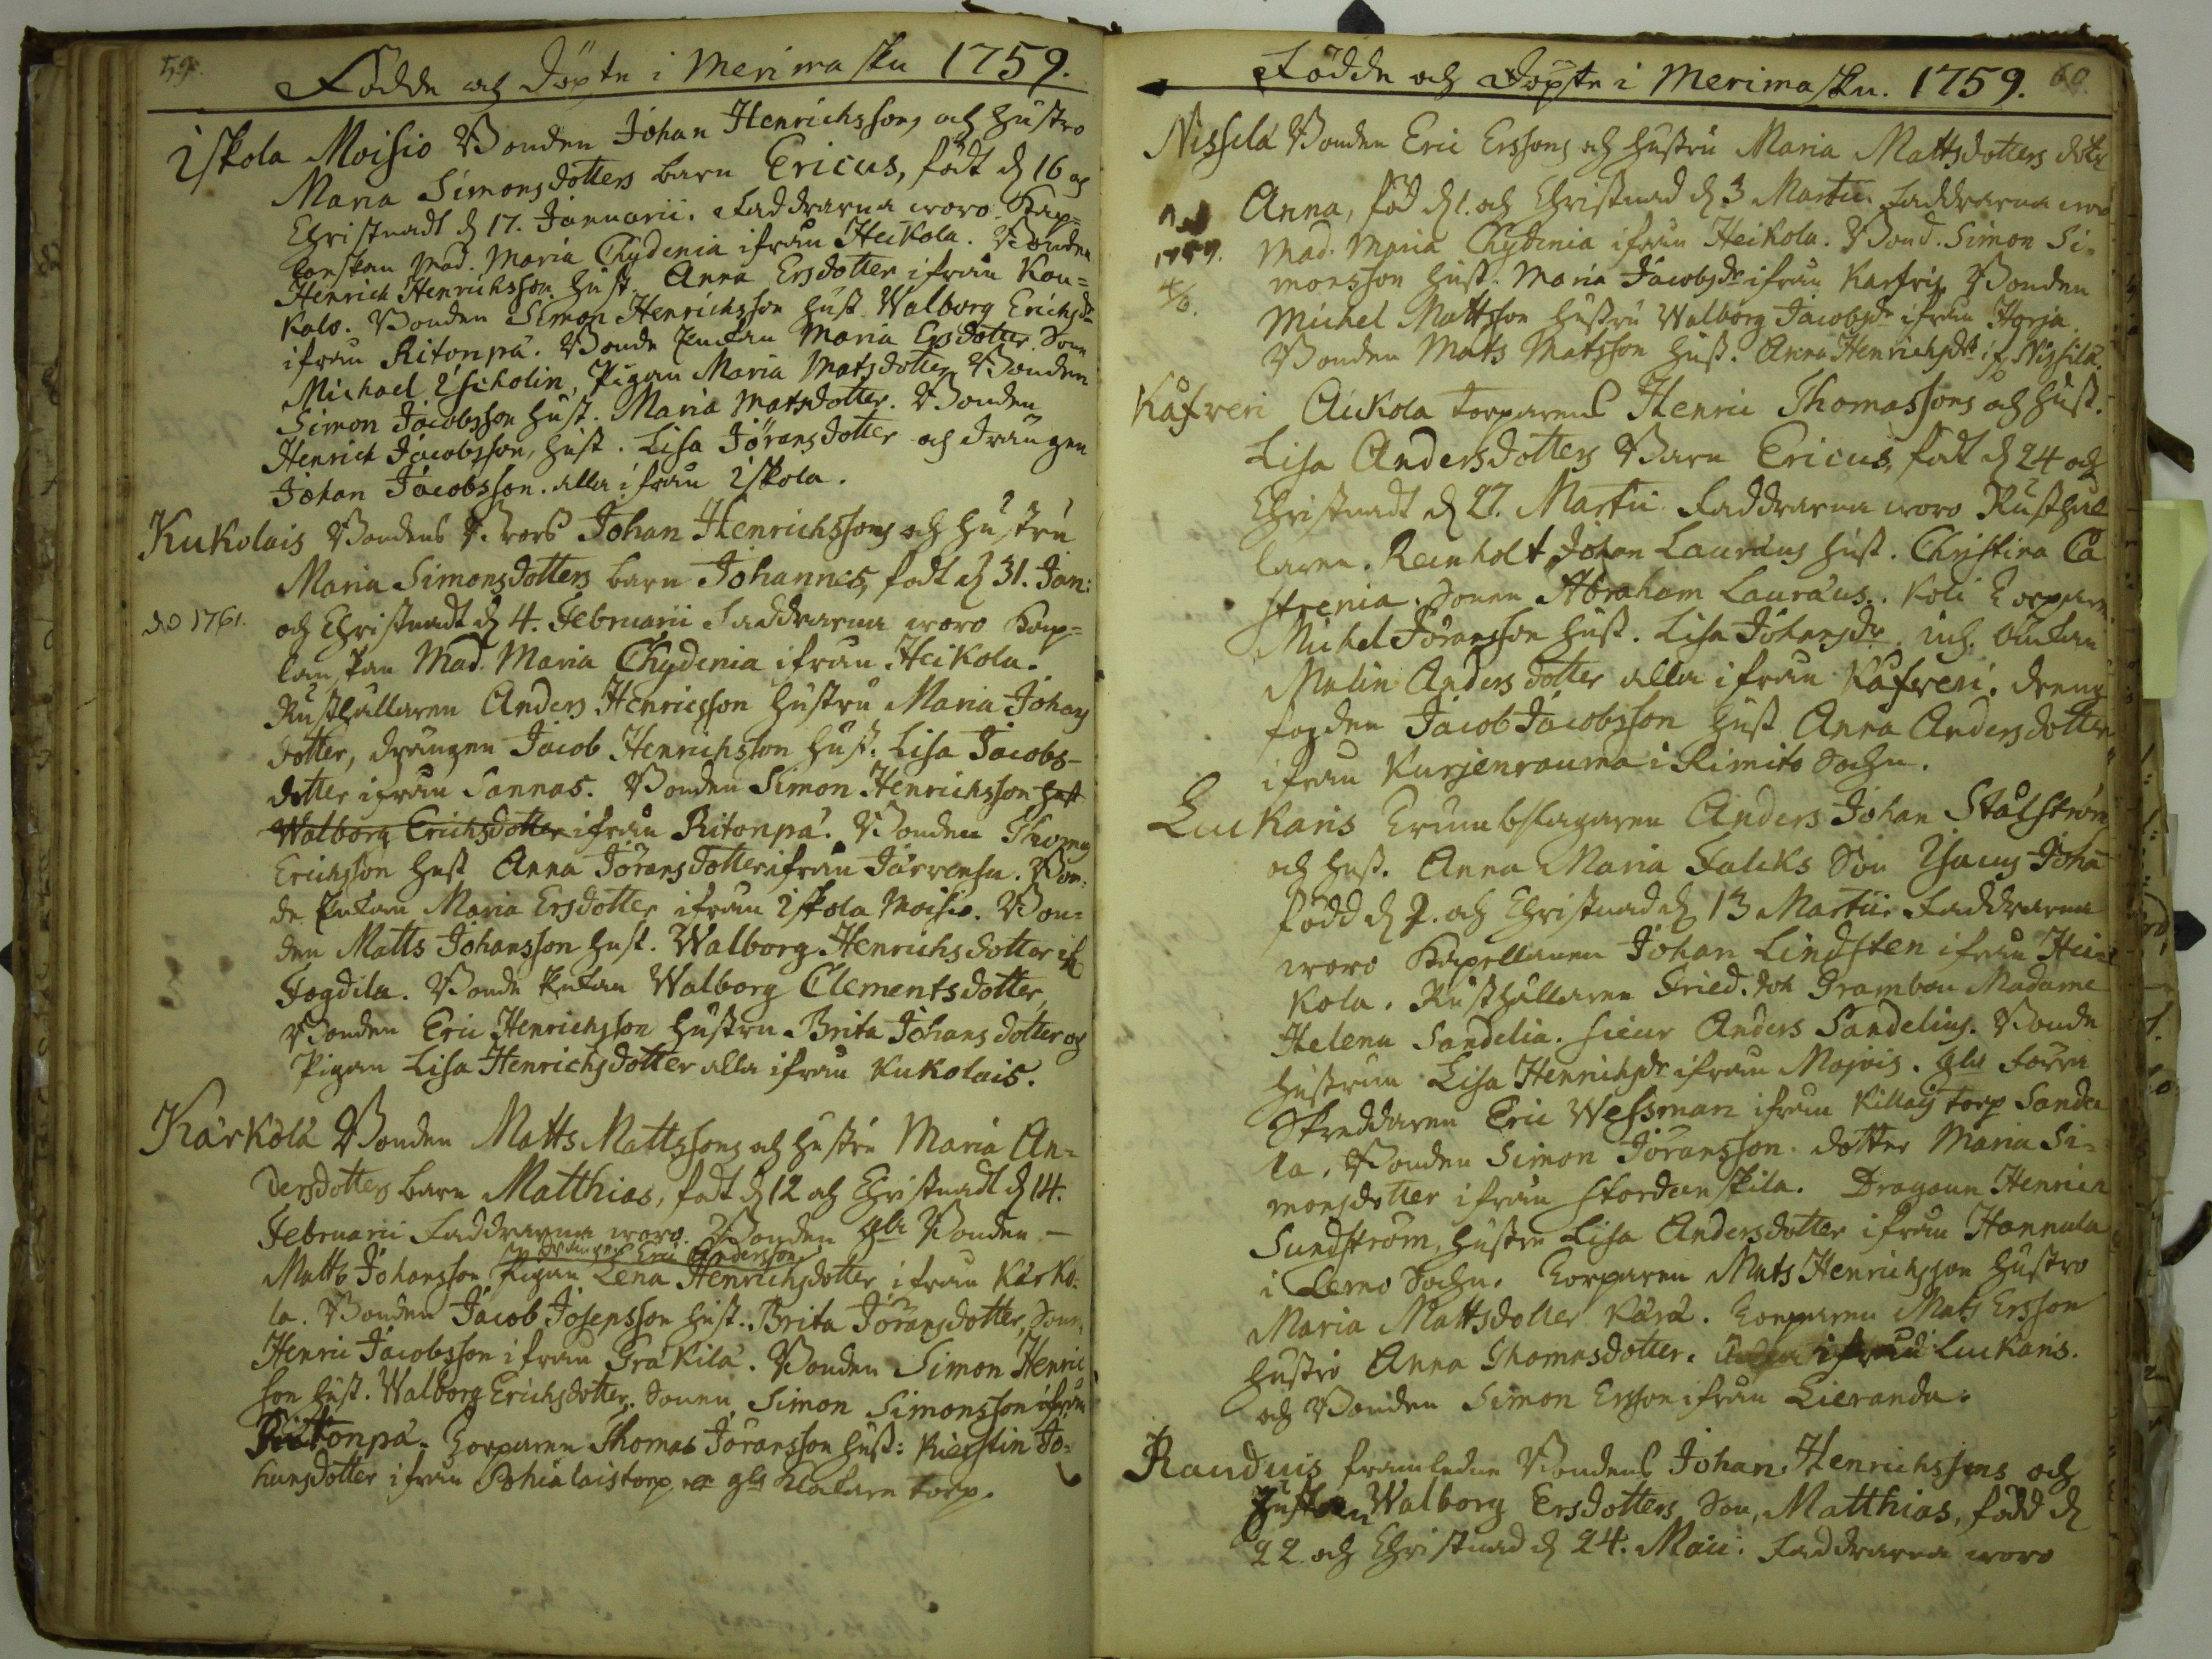 59.
Födde och Döpte i Merimasku 1759.
Iskola Moisio Bonden Johan Henrichssons och Hustro
Maria Simonsdotters barn Ericus, födt d. 16 och
Christnadt d. 17. Januarii. Faddrarna woro. Kap=
lanskan Mad. Maria Chydenia ifrån Heikola. Bonden
Henrich Henrichsson Hust. Anna Ersdotter ifrån Kou=
kalo. Bonden Simon Henrichsson Hust. Walborg Erichsdr
ifrån Ritonpä. Bonde Enkan Maria Ersdotter. Son
Michael Ischolin, Pigan Maria Matsdotter Bonden
Simon Jacobsson Hust. Maria Matsdotter. Bonden
Henrich Jacobsson, Hust. Lisa Jöransdotter och Drängen
Johan Jacobsson. alla ifrån Iskola.
Kukolais Bondens Johan Henrichssons och Hustru
Maria Simonsdotters barn Johannes, födt d. 31. Jan:
dö 1761.
och Christnadt d. 4. Februarii Faddrarna woro Kap=
lanskan Mad. Maria Chydenia ifrån Heikola.
Rusthållaren Anders Henricsson Hustru Maria Johans
dotter, drängen Jacob Henrichsson Hust. Lisa Jacobs-
dotter ifrån Sannas. Bonden Simon Henrichsson Hust
Walborg Erichsdotter ifrån Ritonpä. Bonden Thomas
Erichsson Hust Anna Jöransdotter ifrån Järvensu. Bon=
de Enkan Maria Ersdotter ifrån Iskola Moisio. Bon=
den Matts Johansson Hust. Walborg Henrichsdotter if
Fogdila. Bonde Enkan Walborg Clementsdotter,
Bonden Eric Henrichsson Hustru Brita Johansdotter och
Pigan Lisa Henrichsdotter alla ifrån Kukolais.
Kärkölä Bonden Matts Mattssons och Hustru Maria An=
dersdotters barn Matthias, födt d. 12 och Christnadt d. 14.
Februarii Faddrarna woro. Bonden gla Bonden -
Drängen Eric Andersson
Matts Johansson Pigan Lena Henrichsdotter ifrån Kärkö=
la. Bonden Jacob Josepsson Hust. Brita Jöransdotter, Son
Henric Jacobsson ifrån Gräkilä. Bonden Simon Henric
son Hust. Walborg Erichsdotter. Sonen Simon Simonsson ifrån
Ritonpä. Torparen Thomas Jöransson Hust: Kierstin Jo=
hansdotter ifrån Pohialaistorp gla torp.
60.
Födde och Döpte i Merimasku. 1759.
Nissilä Bonden Eric Erssons och Hustru Maria Mattsdotters dotr
Anna, föd d. 1. och Christnad d. 3 Martii. Faddrarna woro
1759.
Mad. Maria Chydenia ifrån Heikola. Bond. Simon Si=
monsson Hust. Maria Jacobsdr ifrån Karfris Bonden
Michel Mattsson Hustru Walborg Jacobsdr ifrån Harja
Bonden Mats Matsson Hust. Anna Henrichsdr if. Nissilä.
Kåfveri Aukola torparens Henric Thomassons och Hust.
Lisa Andersdotters Barn Ericus, födt d. 24 och
Christnadt d. 27. Martii Faddrarna woro Rusthål
laren. Reinholt Johan Lauræus Hust. Christina Ca
strenia. Sonen Abraham Lauræus. Koli Torparen
Michel Jöransson Hust. Lisa Johansdr. inh. Enkan
Malin Andersdotter alla ifrån Kåfveri. dreng
fogden Jacob Jacobsson Hust Anna Andersdotter
ifrån Kurjenrauma i Rimito Sochn.
Luckaris Trumbslagaren Anders Johan Stålström
och Hust. Anna Maria Falcks Son Isacus Joha
född d. 9. och Christnad d. 13 Martii. Faddrarna
woro Kapellanen Johan Lindsten ifrån Hei=
kola. Rusthållaren Fried. Joh Grambou Madame
Helena Sandelia. Sieur Anders Sandelius. Bonde
Hustrun Lisa Henrichsdr ifrån Mojois. gla
Skreddaren Eric Wessman ifrån torp Sanda
la. Bonden Simon Jöransson. dotter Maria Si=
monsdotter ifrån Stordanskila. Dragoun Henrich
Sundström, Hustru Lisa Andersdotter ifrån Hannula
i Lemo Sochn. Torparen Mats Henrichsson Hustro
Maria Mattsdotter Kärä. Torparen Mats Ersson
Hustro Anna Thomasdotter. ifrån Luckaris.
och Bonden Simon Ersson ifrån Lieranda.
Randuis framledne Bondens Johan Henrichssons och
Hustrun Walborg Ersdotters Son, Matthias, född d.
22. och Christnad d. 24. Maii. Faddrarna woro